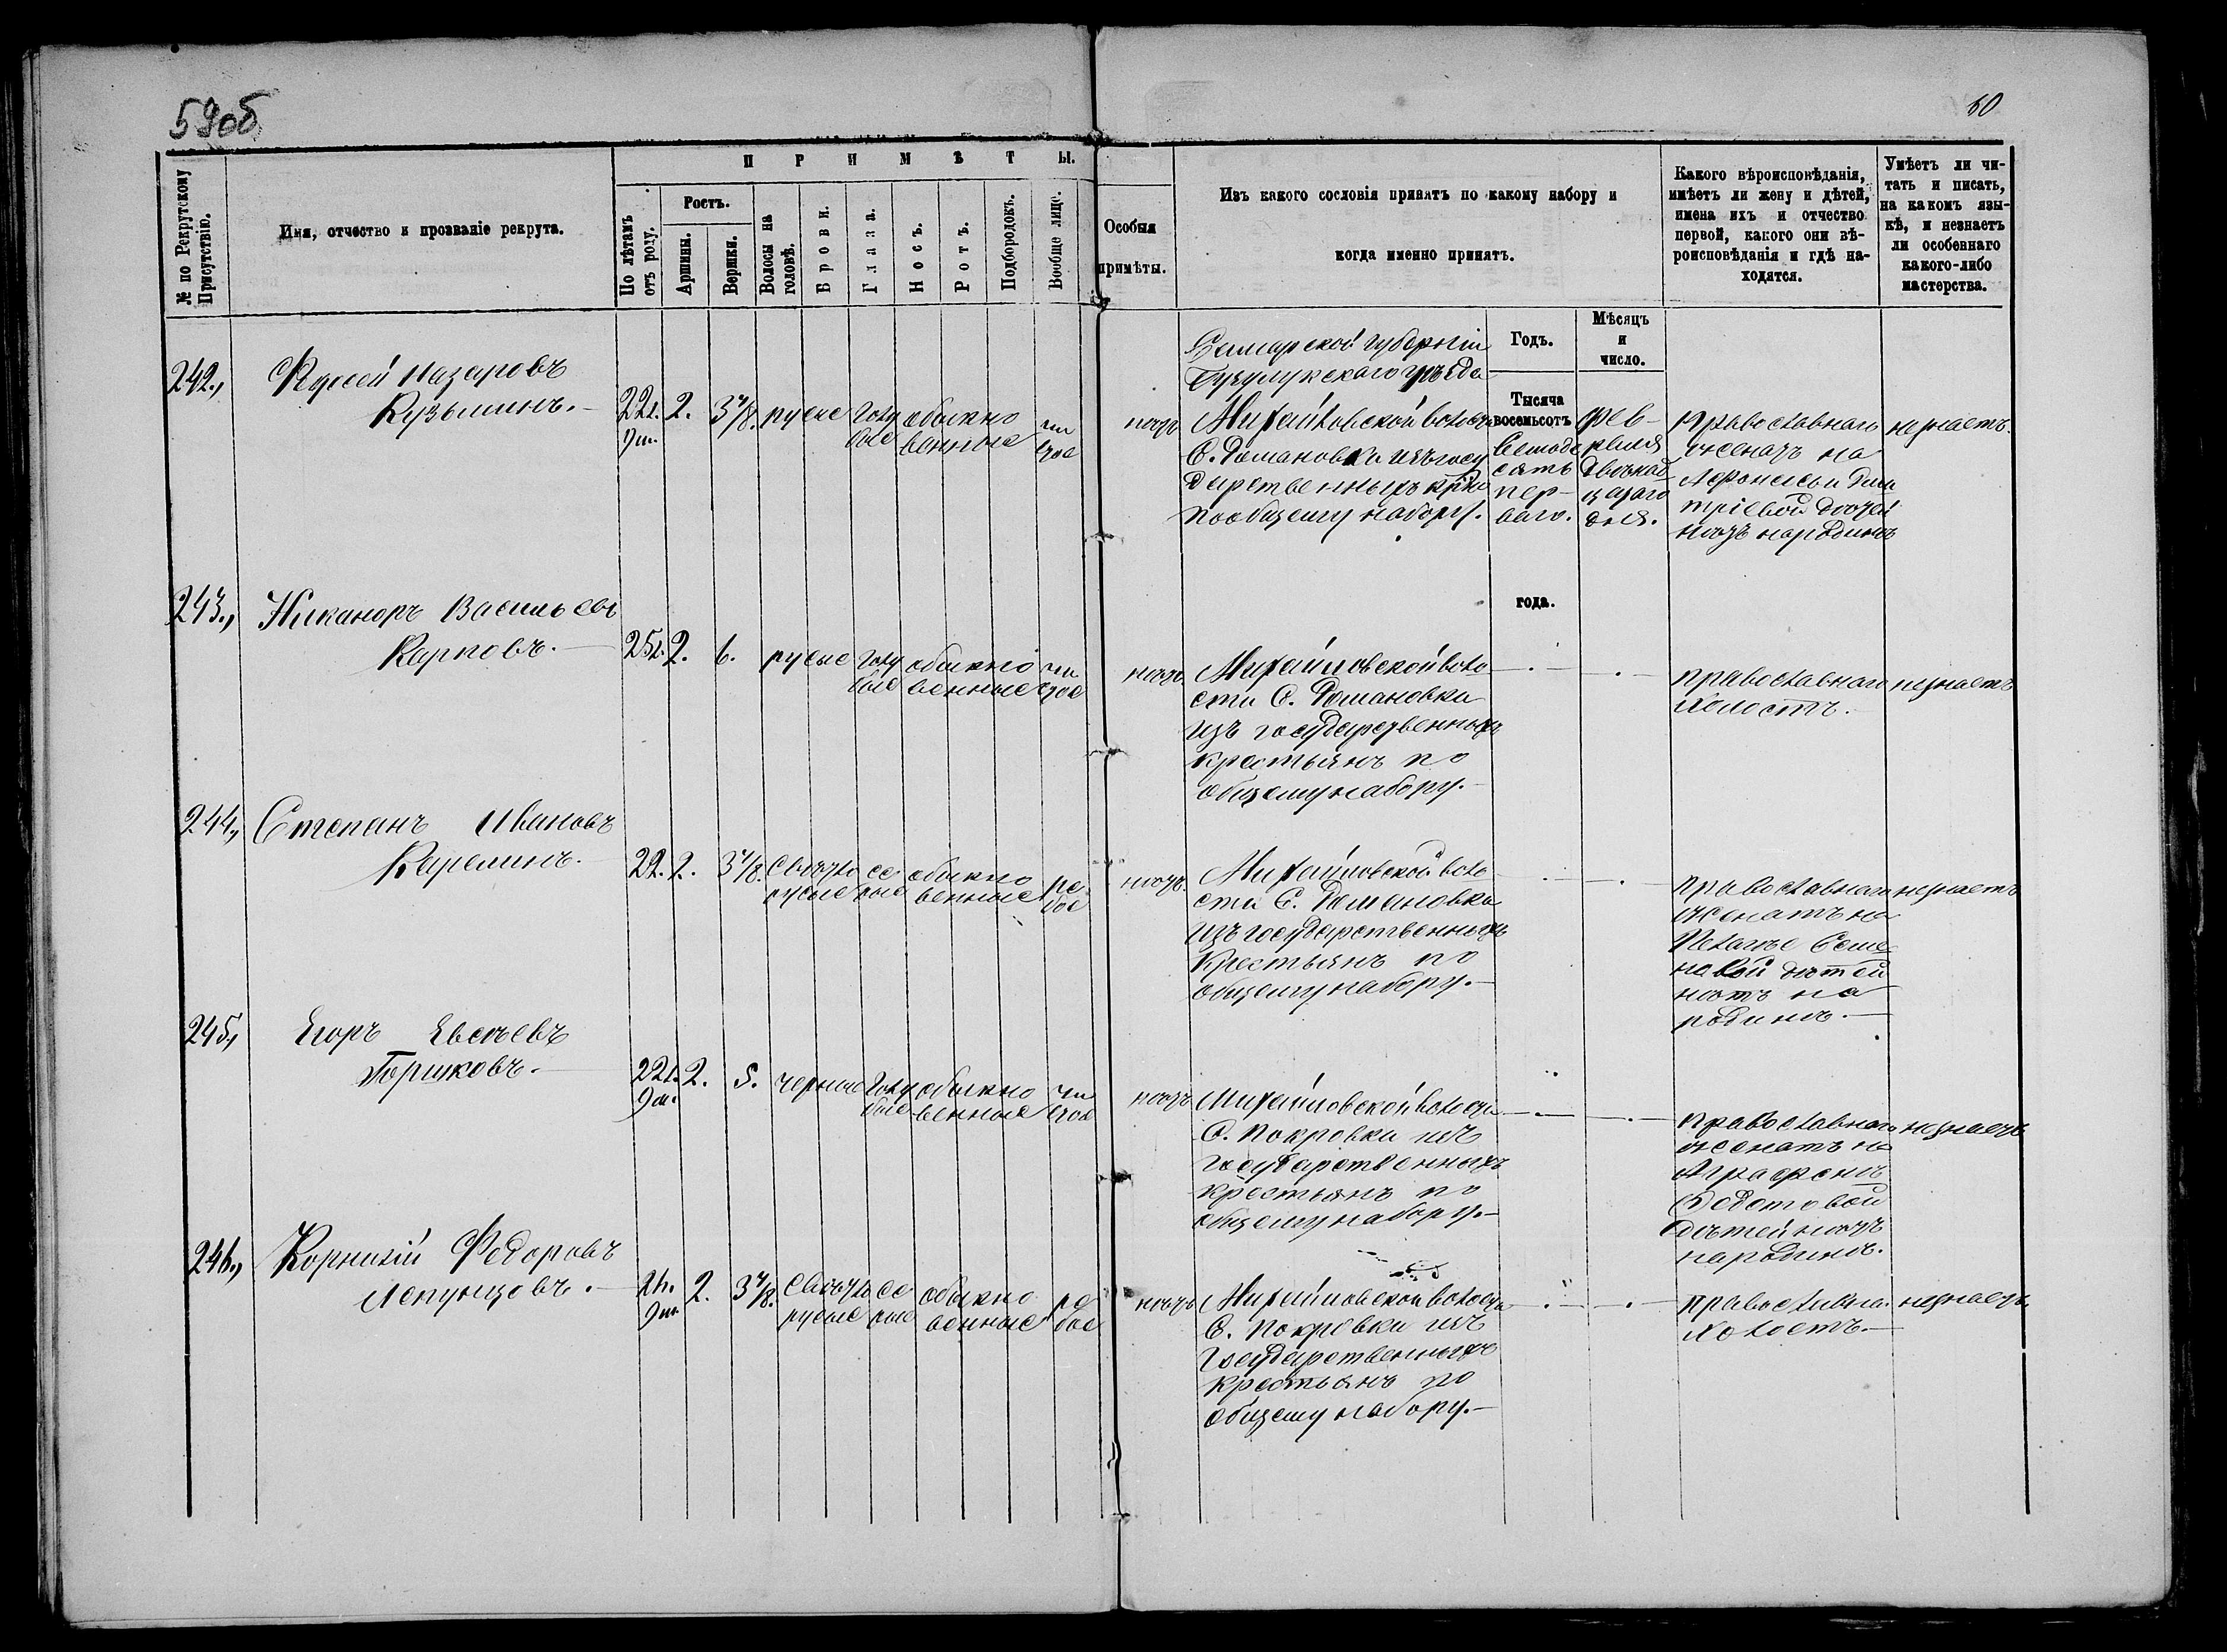 59об
60
П Р И М Ѣ Т Ы.
№ по Рекрутскому Присутствію.
Имя, отчество и прозваніе рекрута.
По лѣтамъ отъ роду.
Ростъ.
Аршины.
Вершки.
Волосы на головѣ.
Брови.
Глаза.
Носъ.
Ротъ.
Подбородокъ.
Вообще лице.
Особыя
примѣты.
Изъ какого сословія принятъ по какому набору и
когда именно принятъ.
Какого вѣроисповѣданія,
имѣетъ ли жену и дѣтей,
имена ихъ и отчество
первой, какого они вѣ-
роисповѣданія и гдѣ на-
ходятся.
Умѣетъ ли чи-
тать и писать,
на какомъ язы-
кѣ, и незнаетъ
ли особеннаго
какого-либо
мастерства.
Годъ.
Мѣсяцъ
и
число.
242.,
Назаровъ
Кузьминъ.
22л.
9м.
2.
3 4/8.
русые
голу
бые
обыкно
венные
чи
стое
нѣтъ
Самарской губерніи
Бузулукскаго уѣзда
Михайловской волости
С. Романовки изъ госу
дарственныхъ кр
по общему набору.
Тысяча
восемьсотъ
семьде
сятъ
пер-
ваго.
года.
Фев-
раля
двенад
цатаго
дня.
православнаго
женатъ на
Дми
тріевой дѣтей
нѣтъ народинѣ
незнаетъ.
243.,
Никаноръ Васильевъ
Карповъ.
25л.
2.
6.
русые
голу
бые
обыкно
венные
чи
стое
нѣтъ
Михайловской воло
сти С. Романовки
изъ государственныхъ
крестьянъ по
общему набору.
православнаго
холостъ.
незнаетъ
244.,
Степанъ Ивановъ
Карелинъ.
22.
2.
3 4/8.
Свѣтло
русые
се
рые
обыкно
венные
ря
бое
нѣтъ
Михайловской воло
сти С. Романовки
изъ государственныхъ
крестьянъ по
общему набору.
православнаго
женатъ на
Пелагѣе Семе
новой дѣтей
нѣтъ на
родинѣ.
незнаетъ
245.,
Егоръ Евсѣевъ
Горшковъ.
22л.
9м.
2.
5.
черные
голу
бые
обыкно
венные
чи
стое
нѣтъ
Михайловской волости
С. Покровки изъ
государственныхъ
крестьянъ по
общему набору.
православнаго
женатъ на
Аграфенѣ
Федотовой
дѣтей нѣтъ
народинѣ.
незнаетъ
246.,
Корнилій Федоровъ
9м.
2.
3 4/8.
Свѣтло
русые
се
рые
обыкно
венные
ря
бое
нѣтъ
Михайловской волости
С. Покровки изъ
государственныхъ
крестьянъ по
общему набору.
православна.
холостъ.
незнаетъ.